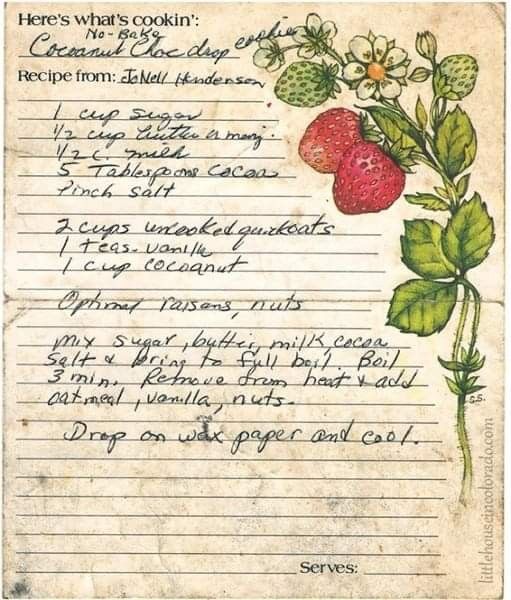 Here's what's cookin':
No-Bake
Cocoanut Choc drop cookie
Recipe from: JoNell Henderson
1 cup sugar
1/2 cup butter or marg.
1/2 c. milk
5 Tablespoons cocoa
Pinch salt
2 cups uncooked quickoats
1 teas. vanilla
1 cup cocoanut
Optional raisans, nuts
Mix sugar, butter, milk cocoa
Salt & bring to full boil. Boil
3 min. Remove from heat & add
oatmeal, vanilla, nuts.
Drop on wax paper and cool.
Serves:
G.S.
littlehouseincolorado.com